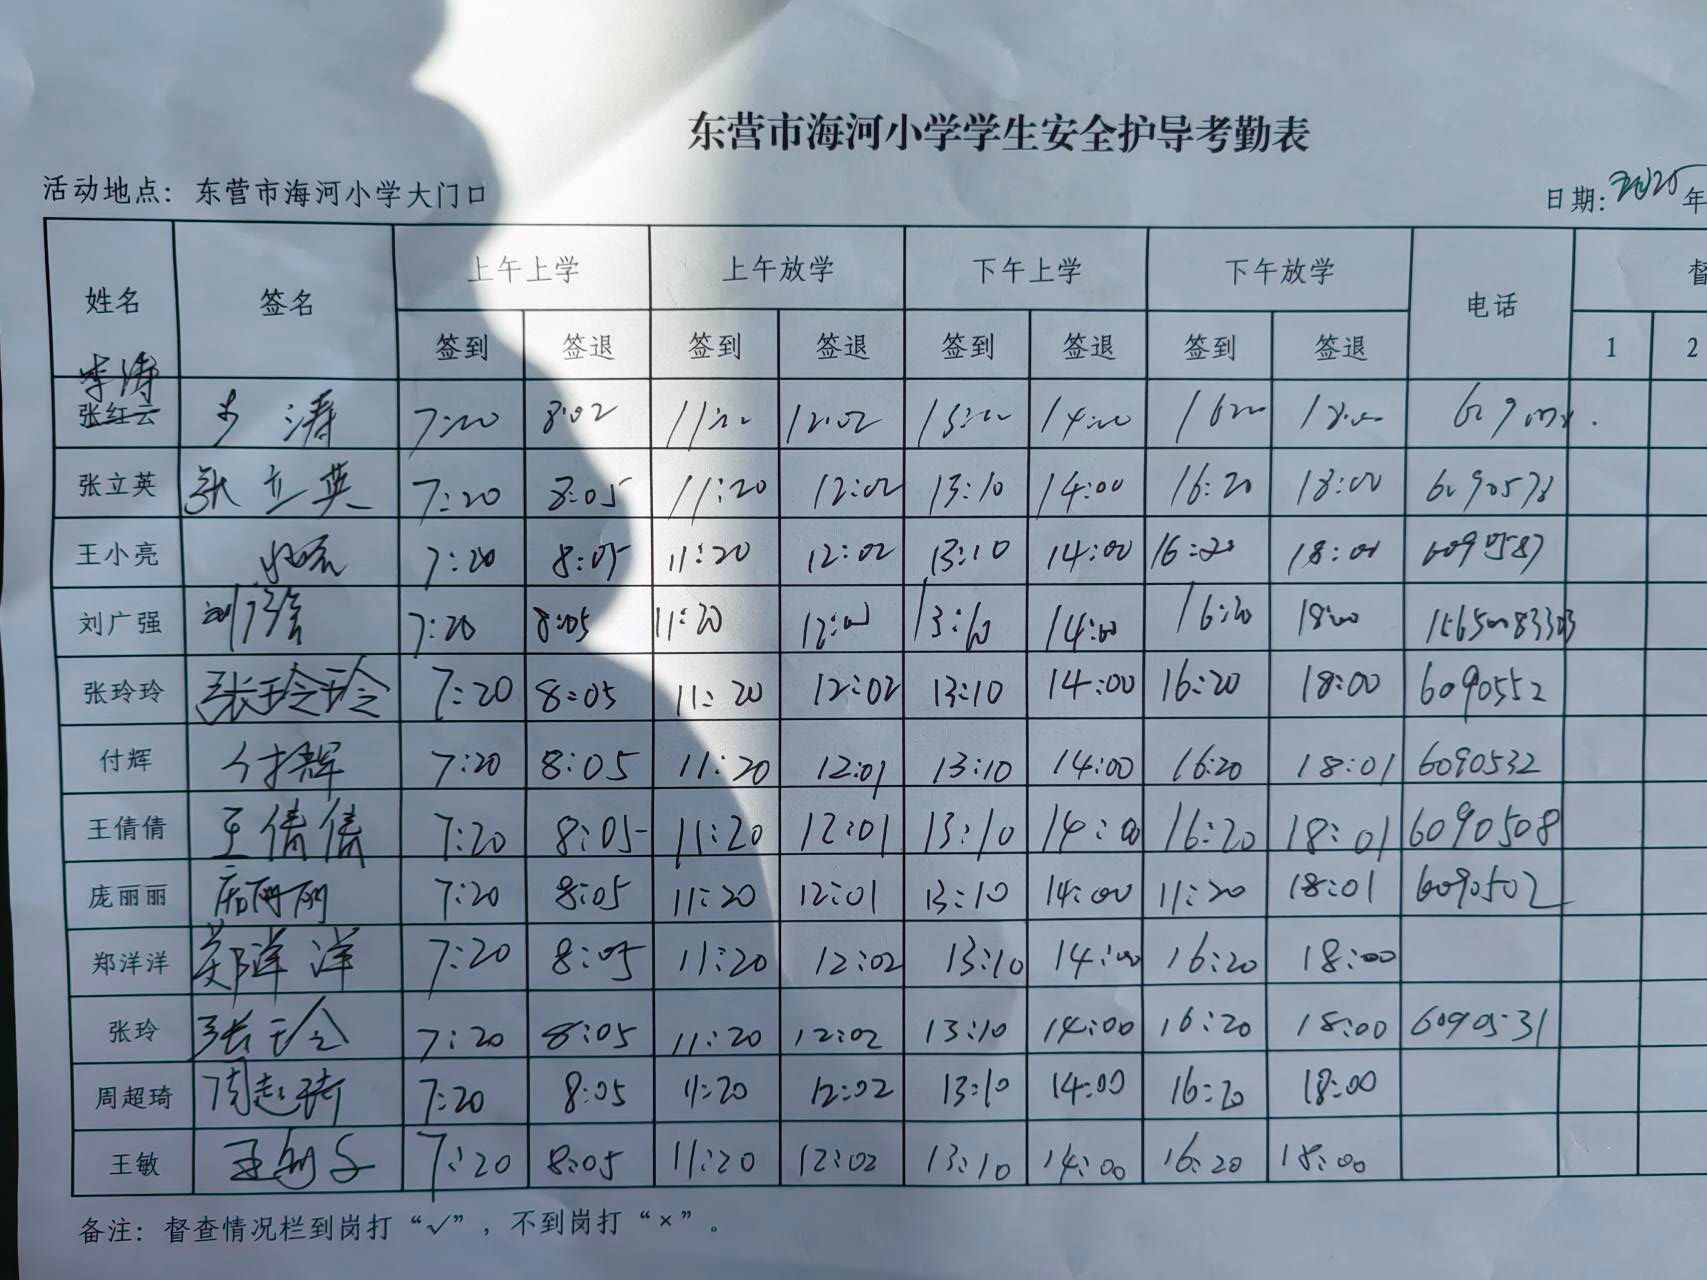 东营市海河小学学生安全护导考勤表
活动地点：东营市海河小学大门口 日期：2025年
姓名 签名 上午上学 上午放学 下午上学 下午放学 电话 督
签到 签退 签到 签退 签到 签退 签到 签退 1 2
李涛
张红云 涛 7:20 8:02 12:02
张立英 张立英 7:20 8:05 11:20 12:02 13:10 14:00 16:20 18:00
王小亮 7:20 8:05 11:20 12:02 13:10 14:00 16:20 18:01 6090587
刘广强 刘广强 7:20 8:05 11:20 12:00 13:10 14:00 16:20 18:00
张玲玲 张玲玲 7:20 8:05 11:20 12:02 13:10 14:00 16:20 18:00 6090552
付辉 付辉 7:20 8:05 11:20 12:01 13:10 14:00 16:20 18:01 6090532
王倩倩 王倩倩 7:20 8:05 11:20 12:01 13:10 14:00 16:20 18:01 6090508
庞丽丽 庞丽丽 7:20 8:05 11:20 12:01 13:10 14:00 11:20 18:01 6090502
郑洋洋 郑洋洋 7:20 8:05 11:20 12:02 13:10 14:00 16:20 18:00
张玲 张玲 7:20 8:05 11:20 12:02 13:10 14:00 16:20 18:00 6090531
周超琦 周超琦 7:20 8:05 11:20 12:02 13:10 14:00 16:20 18:00
王敏 王敏 7:20 8:05 11:20 12:02 13:10 14:00 16:20 18:00
备注：督查情况栏到岗打“√”，不到岗打“×”。